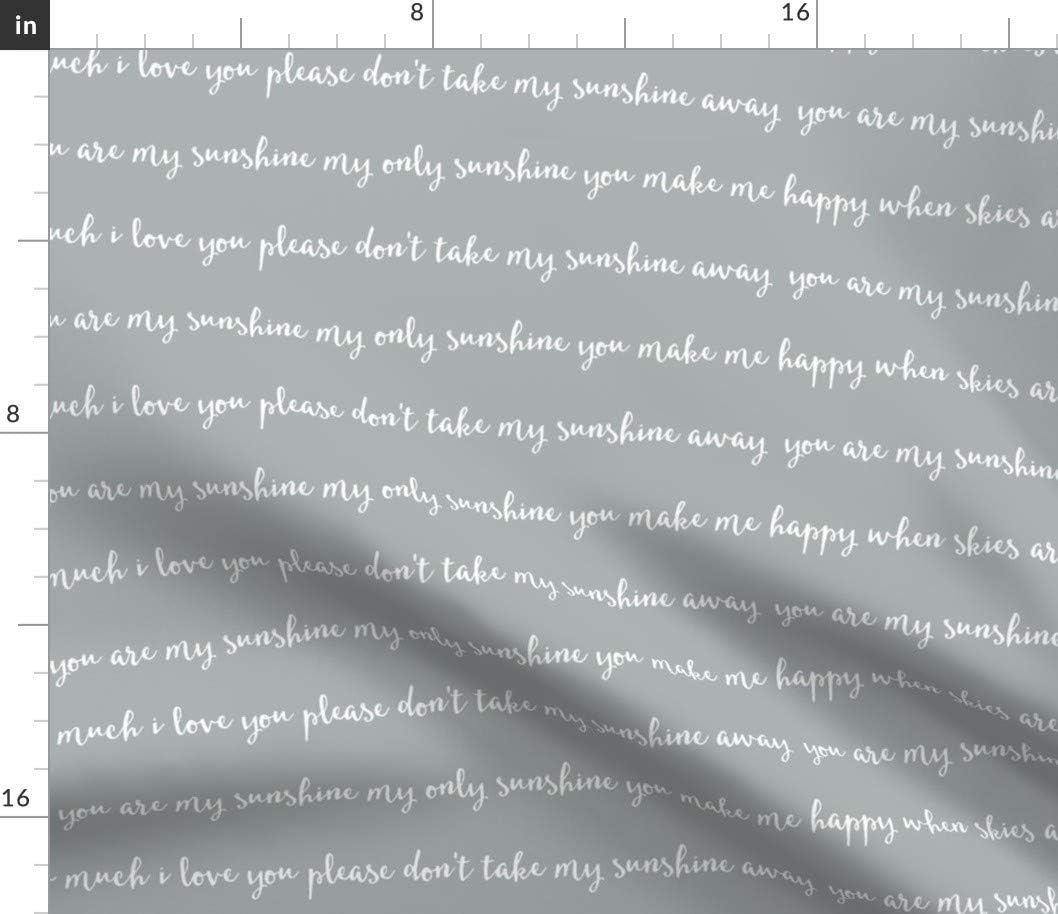 in 8 16
much i love you please don't take my sunshine away you are my
are my sunshine my only sunshine you make me happy when skies
i love you please don't take my sunshine away you are my
are my sunshine my only sunshine you make me happy when skies
8
i love you please don't take my sunshine away you are my
you are my sunshine my only sunshine you make me happy when skies
much i love you please don't take my sunshine away you are my sunshine
you are my sunshine my only sunshine you make me happy when skies are
much i love you please don't take my sunshine away you are my
16
you are my sunshine my only sunshine you make me happy when skies
much i love you please don't take my sunshine away you are my